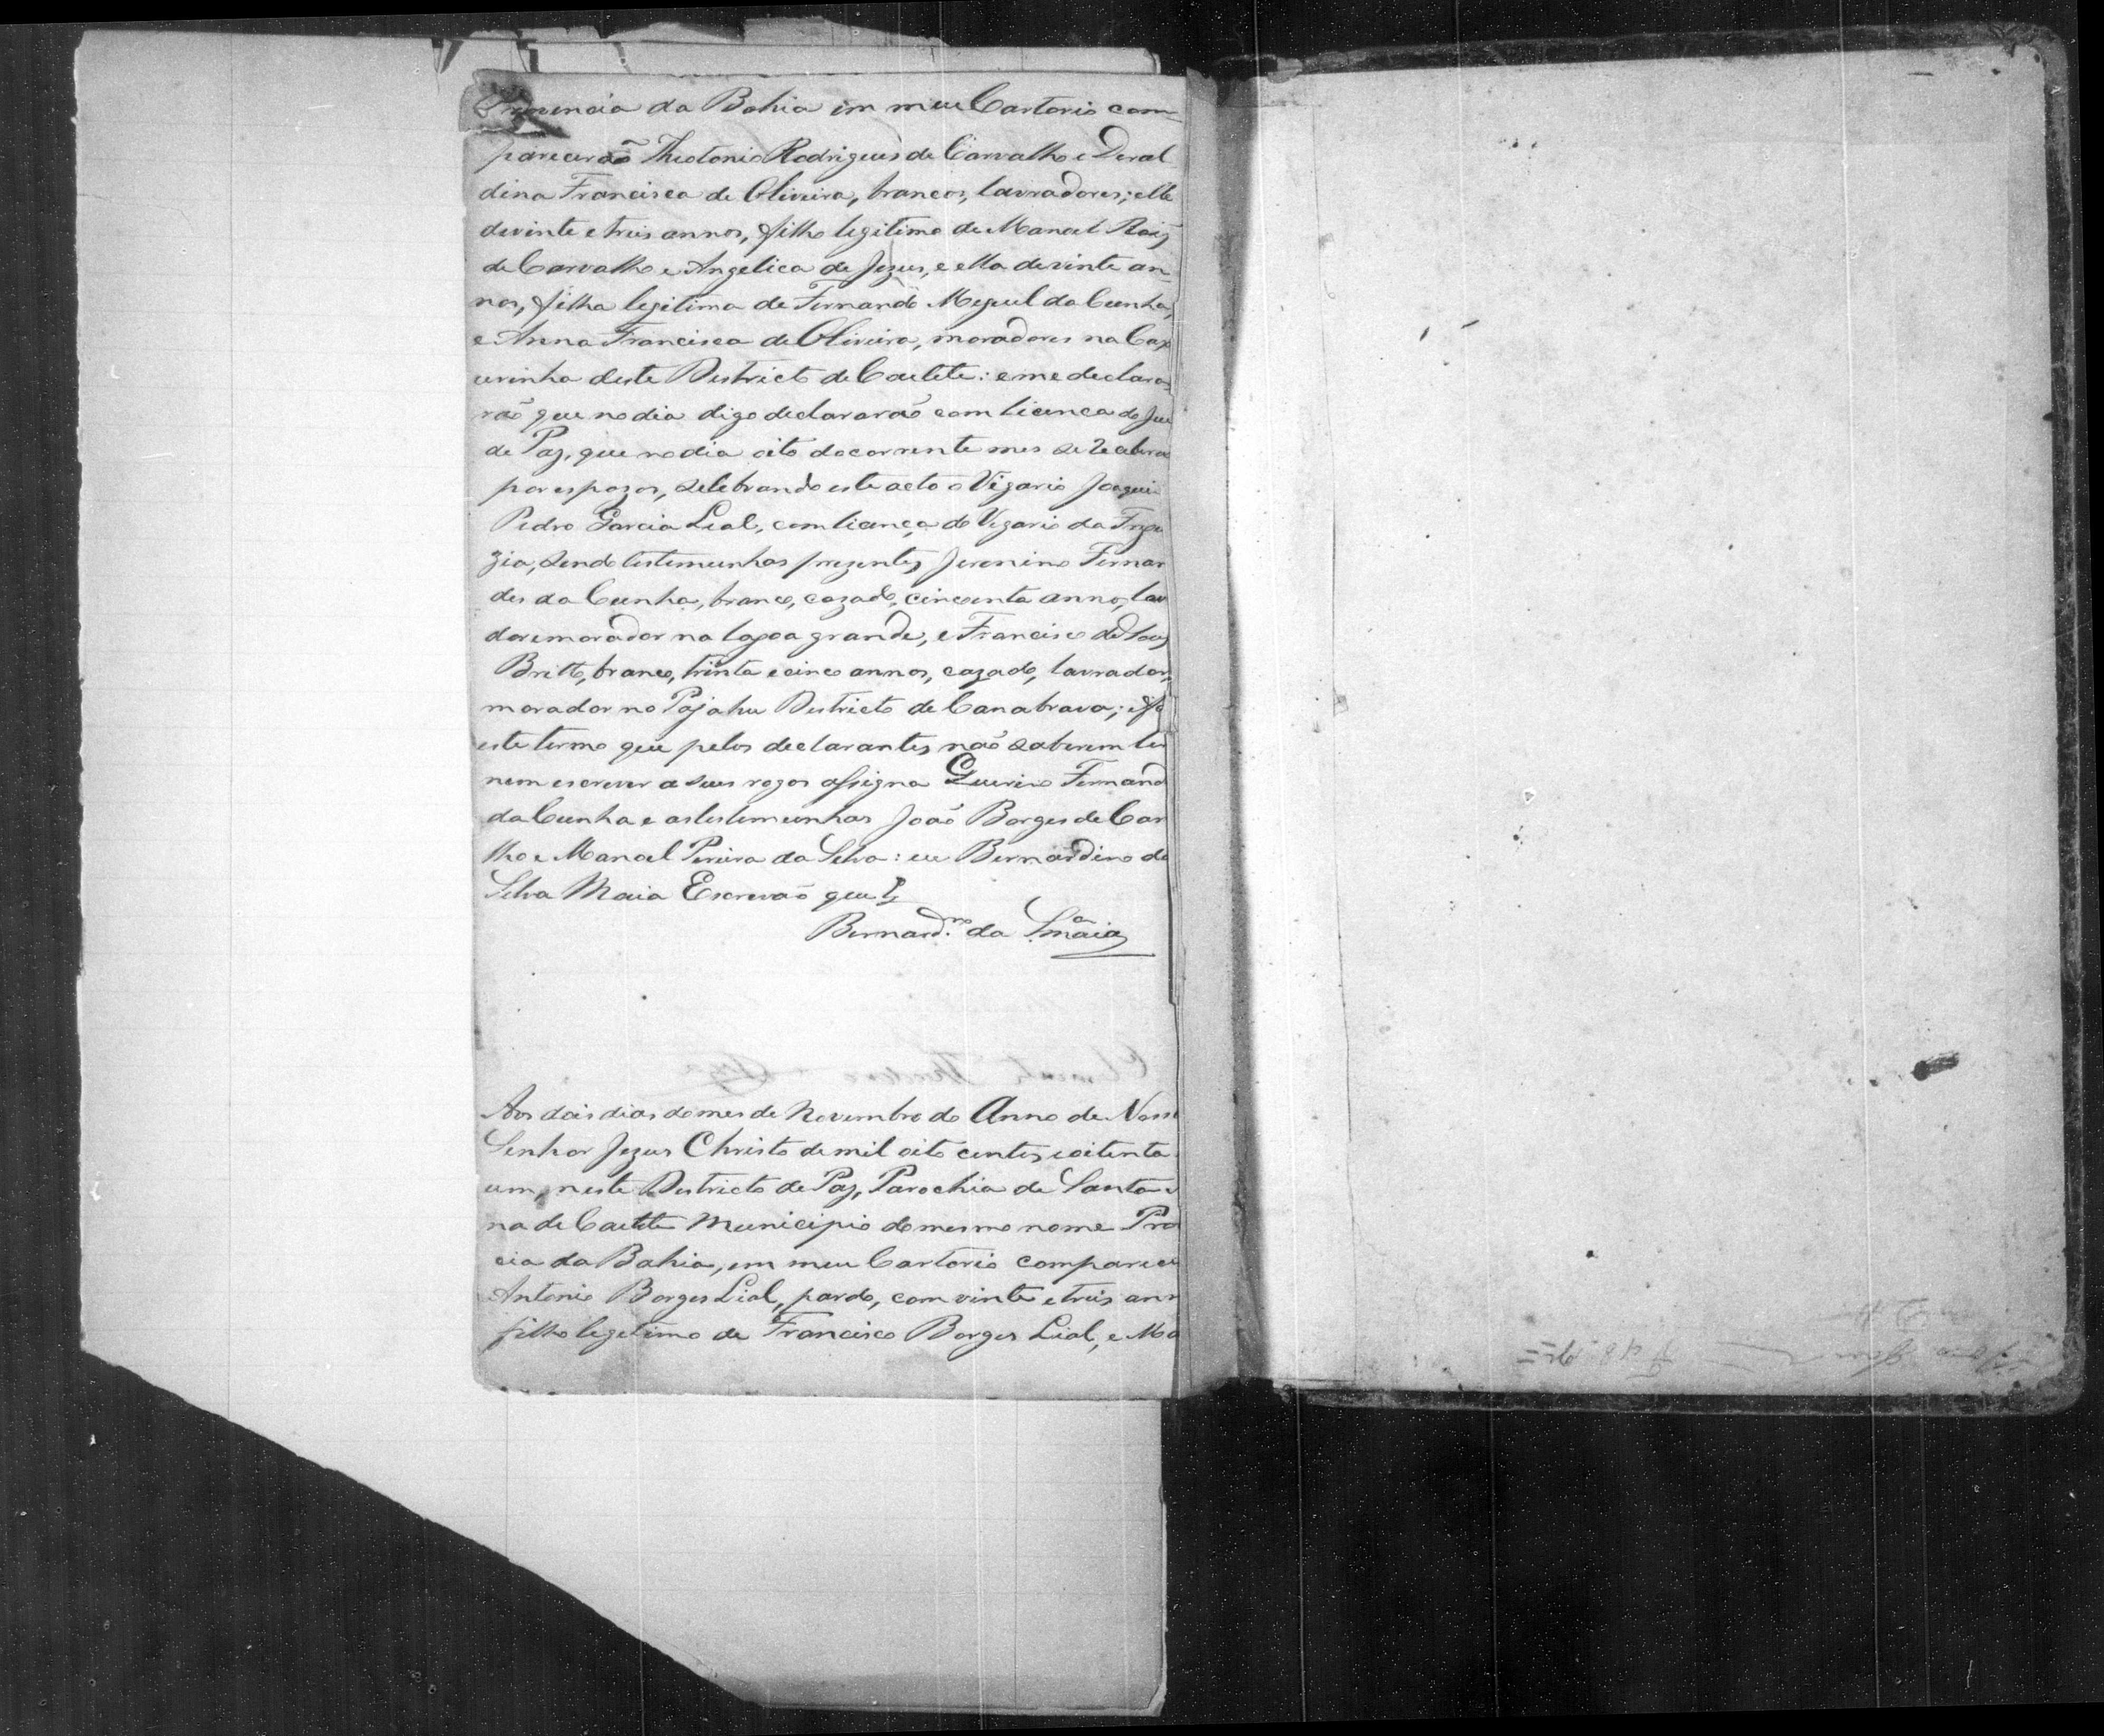 Provincia da Bahia im meu Cartorio com-
parecerão Theotonio Rodrigues de Carvalho e Deral
dina Francisca de Oliveira, brancos, lavradores; elle
de vinte e treis annos, filho legitimo de Manoel Roiz
de Carvalho e Angelica de Jezus, e ella de vinte an-
nos, filha legitima de Fernando Meguel da Cunha,
e Anna Francisca de Oliveira, moradores na Cax
uerinha deste Destricto de Caetete: e me declara
rão que no dia digo declararão com licenca do Jui
de Paz, que no dia oito do corrente mes se receberão
por espozos, selebrando este acto o Vigario Joaquim
Pedro Garcia Leal, com licença do Vegario da Fregue
zia, sendo testemunhas prezentes Jeronimo Fernan
des da Cunha, branco, cazado, cincoenta annos, lavra
dor e morador na lagoa grande, e Francisco de Souza
Britto, branco, trinta e cinco annos, cazado, lavrador,
morador no Pajahu Destricto de Canabrava; e fiz
este termo que pelos declarantes não saberem ler
nem escrever a seus rogos assigna Querino Fernand
da Cunha e as testemunhas João Borges de Car
lho e Manoel Pereira da Selva: eu Bernardino da
Selva Maia Escrevão que
Bernard.no da S.a maia
Aos dois dias do mes de Novembro do Anno de Nosso
Senhor Jezus Christo de mil oito centos e oitenta
um, neste Destricto de Paz, Parochia de Santa
na de Caetete Municipio do mesmo nome Pro
cia da Bahia, em meu Cartorio compareceu
Antonio Borges Lial, pardo, com vinte e treis ann
filho legetimo de Francisco Borges Lial, e Ma